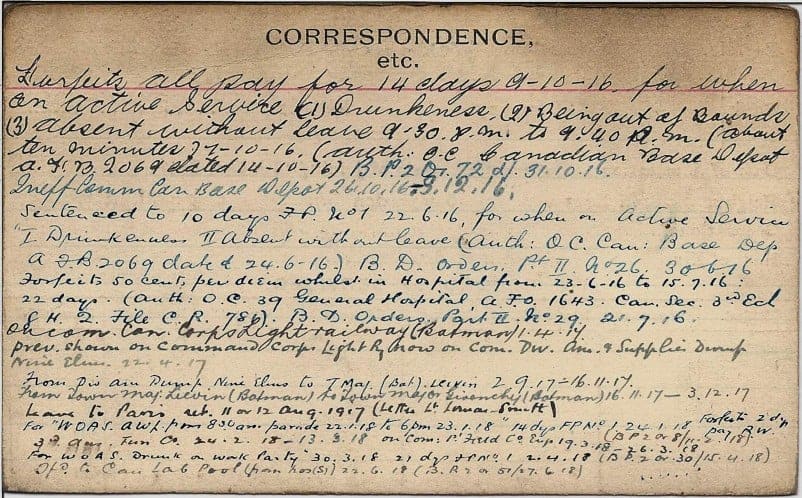 CORRESPONDENCE,
etc.
Forfeits all pay for 14 days 9-10-16 for when
on active Service (1) Drunkeness, (2) Being out of Bounds
(3) absent without leave 9-30. P.m. to 9.40 P.m. (about
ten minutes) 7-10-16. (auth: O.C. Canadian Base Depot
a.F.B. 2069 dated 14-10-16) B.P.2 Or. 72 d/. 31.10.16.
Ineff Comm Can Base Depot 26.10.16-3.12.16.
Sentenced to 10 days F.P. No1 22.6.16, for when on Active Service
"I Drunkeness II Absent without leave (Auth: O.C. Can: Base Dep
A F B 2069 dated 24.6-16.) B.D. Orders. Pt II. No 26. 30 6 16
Forfeits 50 cents, per diem whilst in Hospital from 23-6-16 to 15.7.16:
22 days. (Auth: O.C. 39 General Hospital, A.F.O. 1643. Can. Sec. 3rd Ech
G.H.Q. File C.R. 786). B.D. Orders. Part II. No 29. 21.7.16.
on com. Can. Corps Light railway (Batman) 1.4.17
prev. shown on Command Corps Light Ry now on Com. Div. Am. & Supplies Dump
Nine Elms. 22.4.17
From Div am Dump Nine Elms to T Maj. (Bat). Lievin 2.9.17-16.11.17.
From Town Maj. Lievin (Batman) to Town Major Givenchy (Batman) 16.11.17 - 3.12.17
Leave to Paris ret. 11 or 12 Aug. 1917 (Letter Lt
For "W.O.A.S. A.W.L. from 8.30 am parade 22.1.18 to 6pm 23.1.18" 14 dys FP No 1 24.1.18 Forfeits 2 dys pay R.W.
3rd 24.2.18 - 13.3.18 on Com: 1st Field Co 19.3.18 - 26.3.18
For W.O.A.S. Drunk on work Party" 30.3.18 21 dys F.P. No 1 2.4.18 (B.P.2 or 30/15.4.18)
to Can Lab Pool 22.6.18 (B.P.2 or 51/27.6.18)